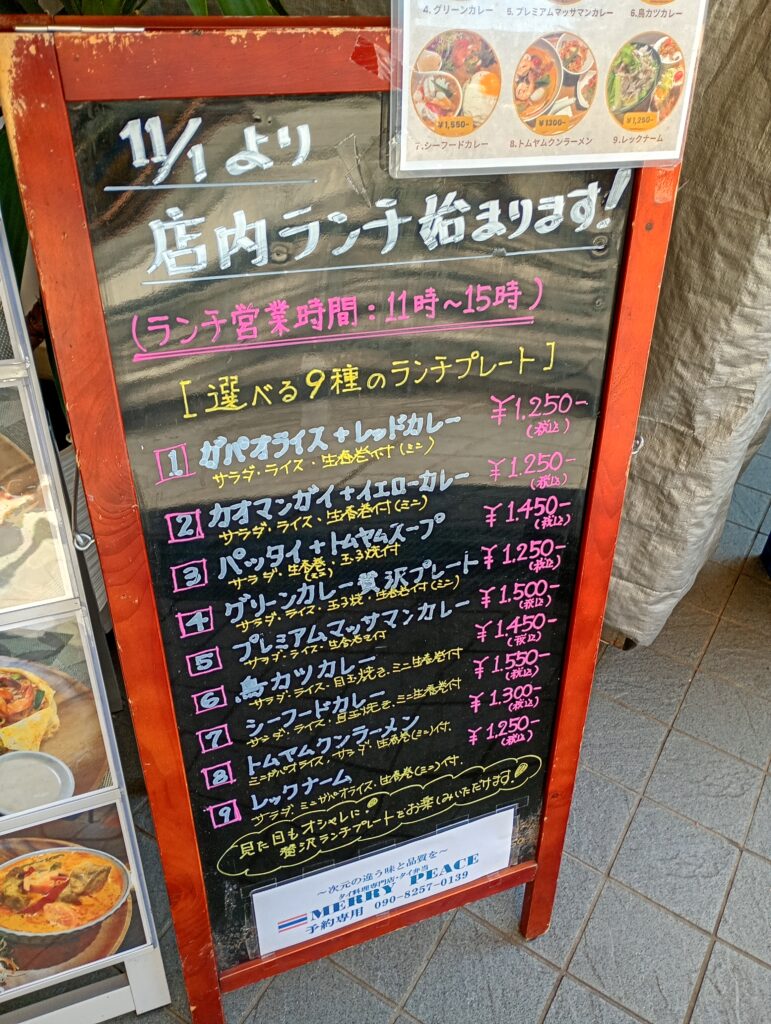 4. グリーンカレー 5. プレミアムマッサマンカレー 6. 鳥カツカレー
¥1,550- ¥1300- ¥1,250-
7. シーフードカレー 8. トムヤムクンラーメン 9. レックナーム
11/1より
店内ランチ始まります!
(ランチ営業時間:11時~15時)
[選べる9種のランチプレート]
1 ガパオライス+レッドカレー ¥1.250-
サラダ・ライス・生春巻付(ミニ) (税込)
2 カオマンガイ+イエローカレー ¥1.250-
サラダ・ライス・生春巻付(ミニ) (税込)
3 パッタイ+トムヤムスープ ¥1.450-
サラダ・生春巻(ミニ)・玉子焼付 (税込)
4 グリーンカレー贅沢プレート ¥1.250-
サラダ・ライス・玉子焼・生春巻付(ミニ) (税込)
5 プレミアムマッサマンカレー ¥1.500-
サラダ・ライス・生春巻き付 (税込)
6 鳥カツカレー ¥1.450-
サラダ・ライス・目玉焼き・ミニ生春巻付 (税込)
7 シーフードカレー ¥1.550-
サラダ・ライス・目玉焼き・ミニ生春巻付 (税込)
8 トムヤムクンラーメン ¥1.300-
ミニガパオライス・サラダ・生春巻(ミニ)付. (税込)
9 レックナーム ¥1.250-
サラダ・ミニガパオライス・生春巻(ミニ)付. (税込)
見た目もオシャレに!
贅沢ランチプレートでお楽しみいただけます!
~次元の違う味と品質を~
タイ料理専門店・タイ弁当
MERRY PEACE
予約専用 090-8257-0139